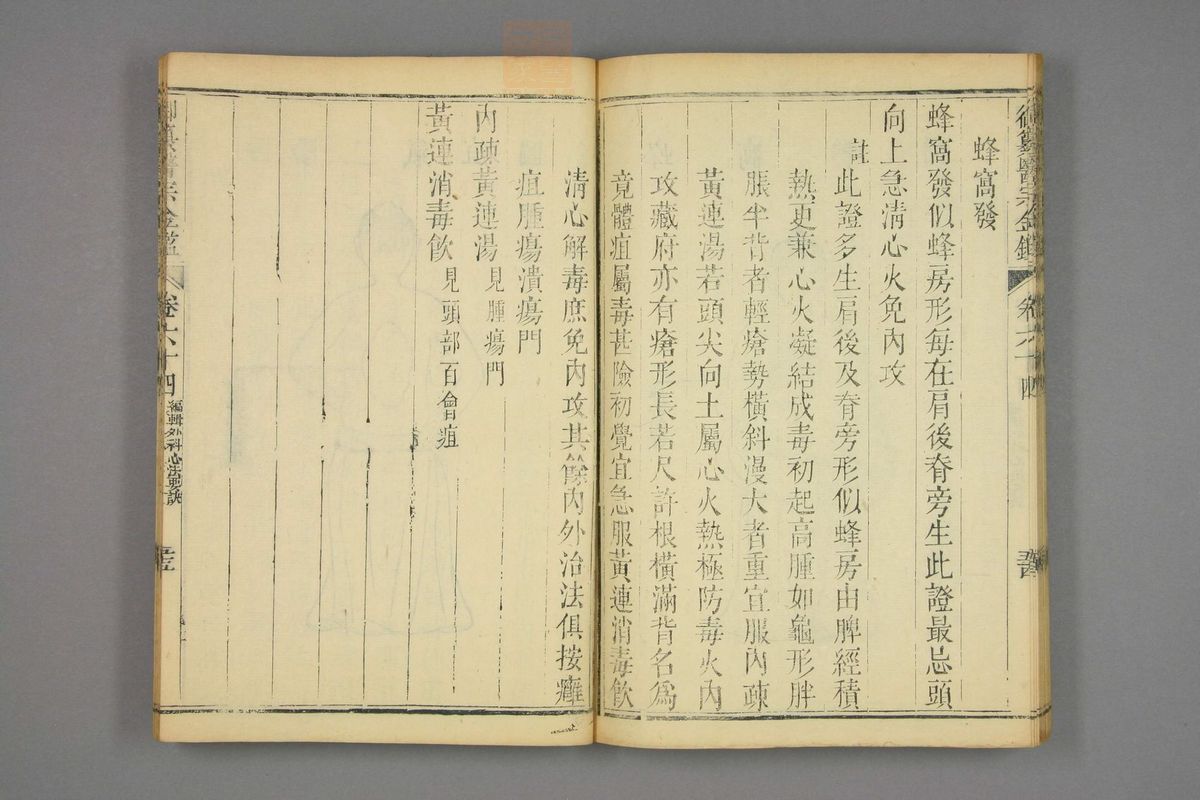 御纂醫宗金鑑 卷六十四
蜂窩發
蜂窩發似蜂房形每在肩後脊旁生此證最忌頭
向上急清心火免內攻
註
此證多生肩後及脊旁形似蜂房由脾經積
熱更兼心火凝結成毒初起高腫如龜形胖
脹半背者輕瘡勢橫斜漫大者重宜服內疎
黃連湯若頭尖向上屬心火熱極防毒火內
攻藏府亦有瘡形長若尺許根橫滿背名為
竟體疽屬毒甚險初覺宜急服黃連消毒飲
清心解毒庶免內攻其餘內外治法俱按癰
疽腫瘍潰瘍門
內疎黃連湯 見腫瘍門
黃連消毒飲 見頭部百會疽
御纂醫宗金鑑 卷六十四 編輯外科心法要訣